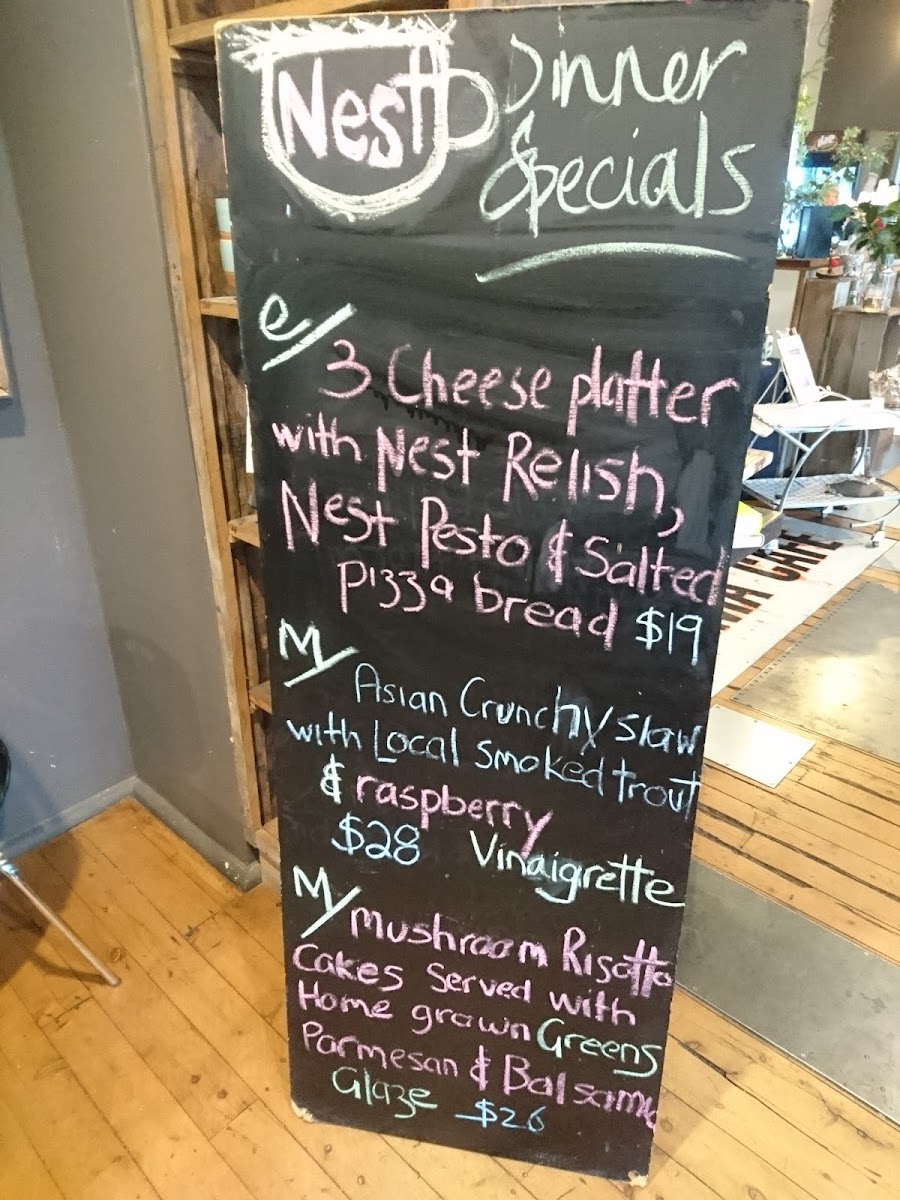 Nest
Dinner
Specials
e/
3 Cheese platter
with Nest Relish,
Nest Pesto & Salted
Pizza bread $19
M/
Asian Crunchy slaw
with Local smoked trout
& raspberry
$28 Vinaigrette
M/
Mushroom Risotto
Cakes Served with
Home grown Greens
Parmesan & Balsamic
Glaze $26
CAFE